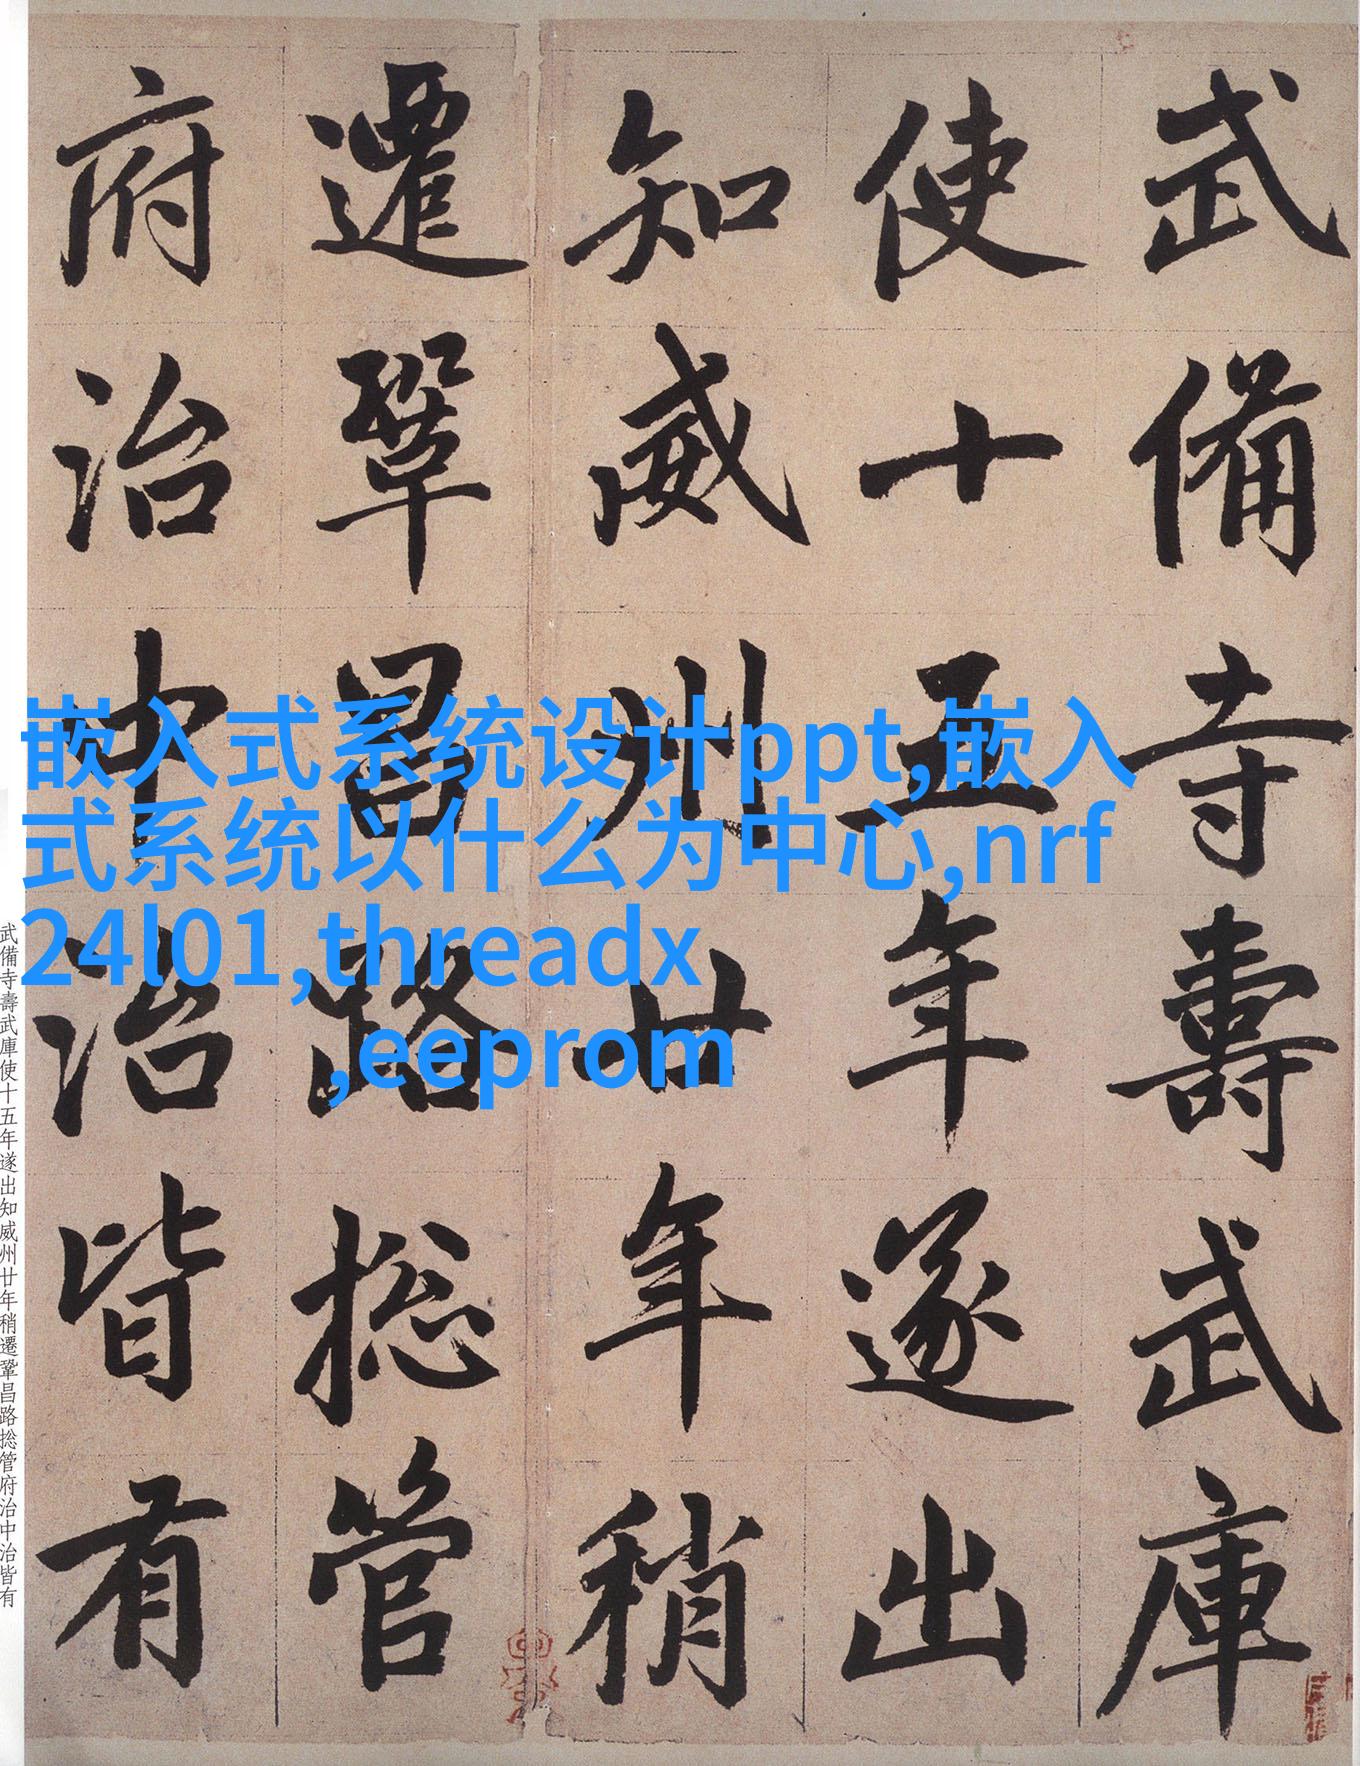 武備寺壽武庫
使十五年遂出
知威州廿年稍
遷鞏昌路捴管
府治中治皆有
嵌入式系统设计ppt,嵌入
式系统以什么为中心,nrf
24l01,threadx
,eeprom
武備寺壽武庫使十五年遂出知威州廿年稍遷鞏昌路捴管府治中治皆有